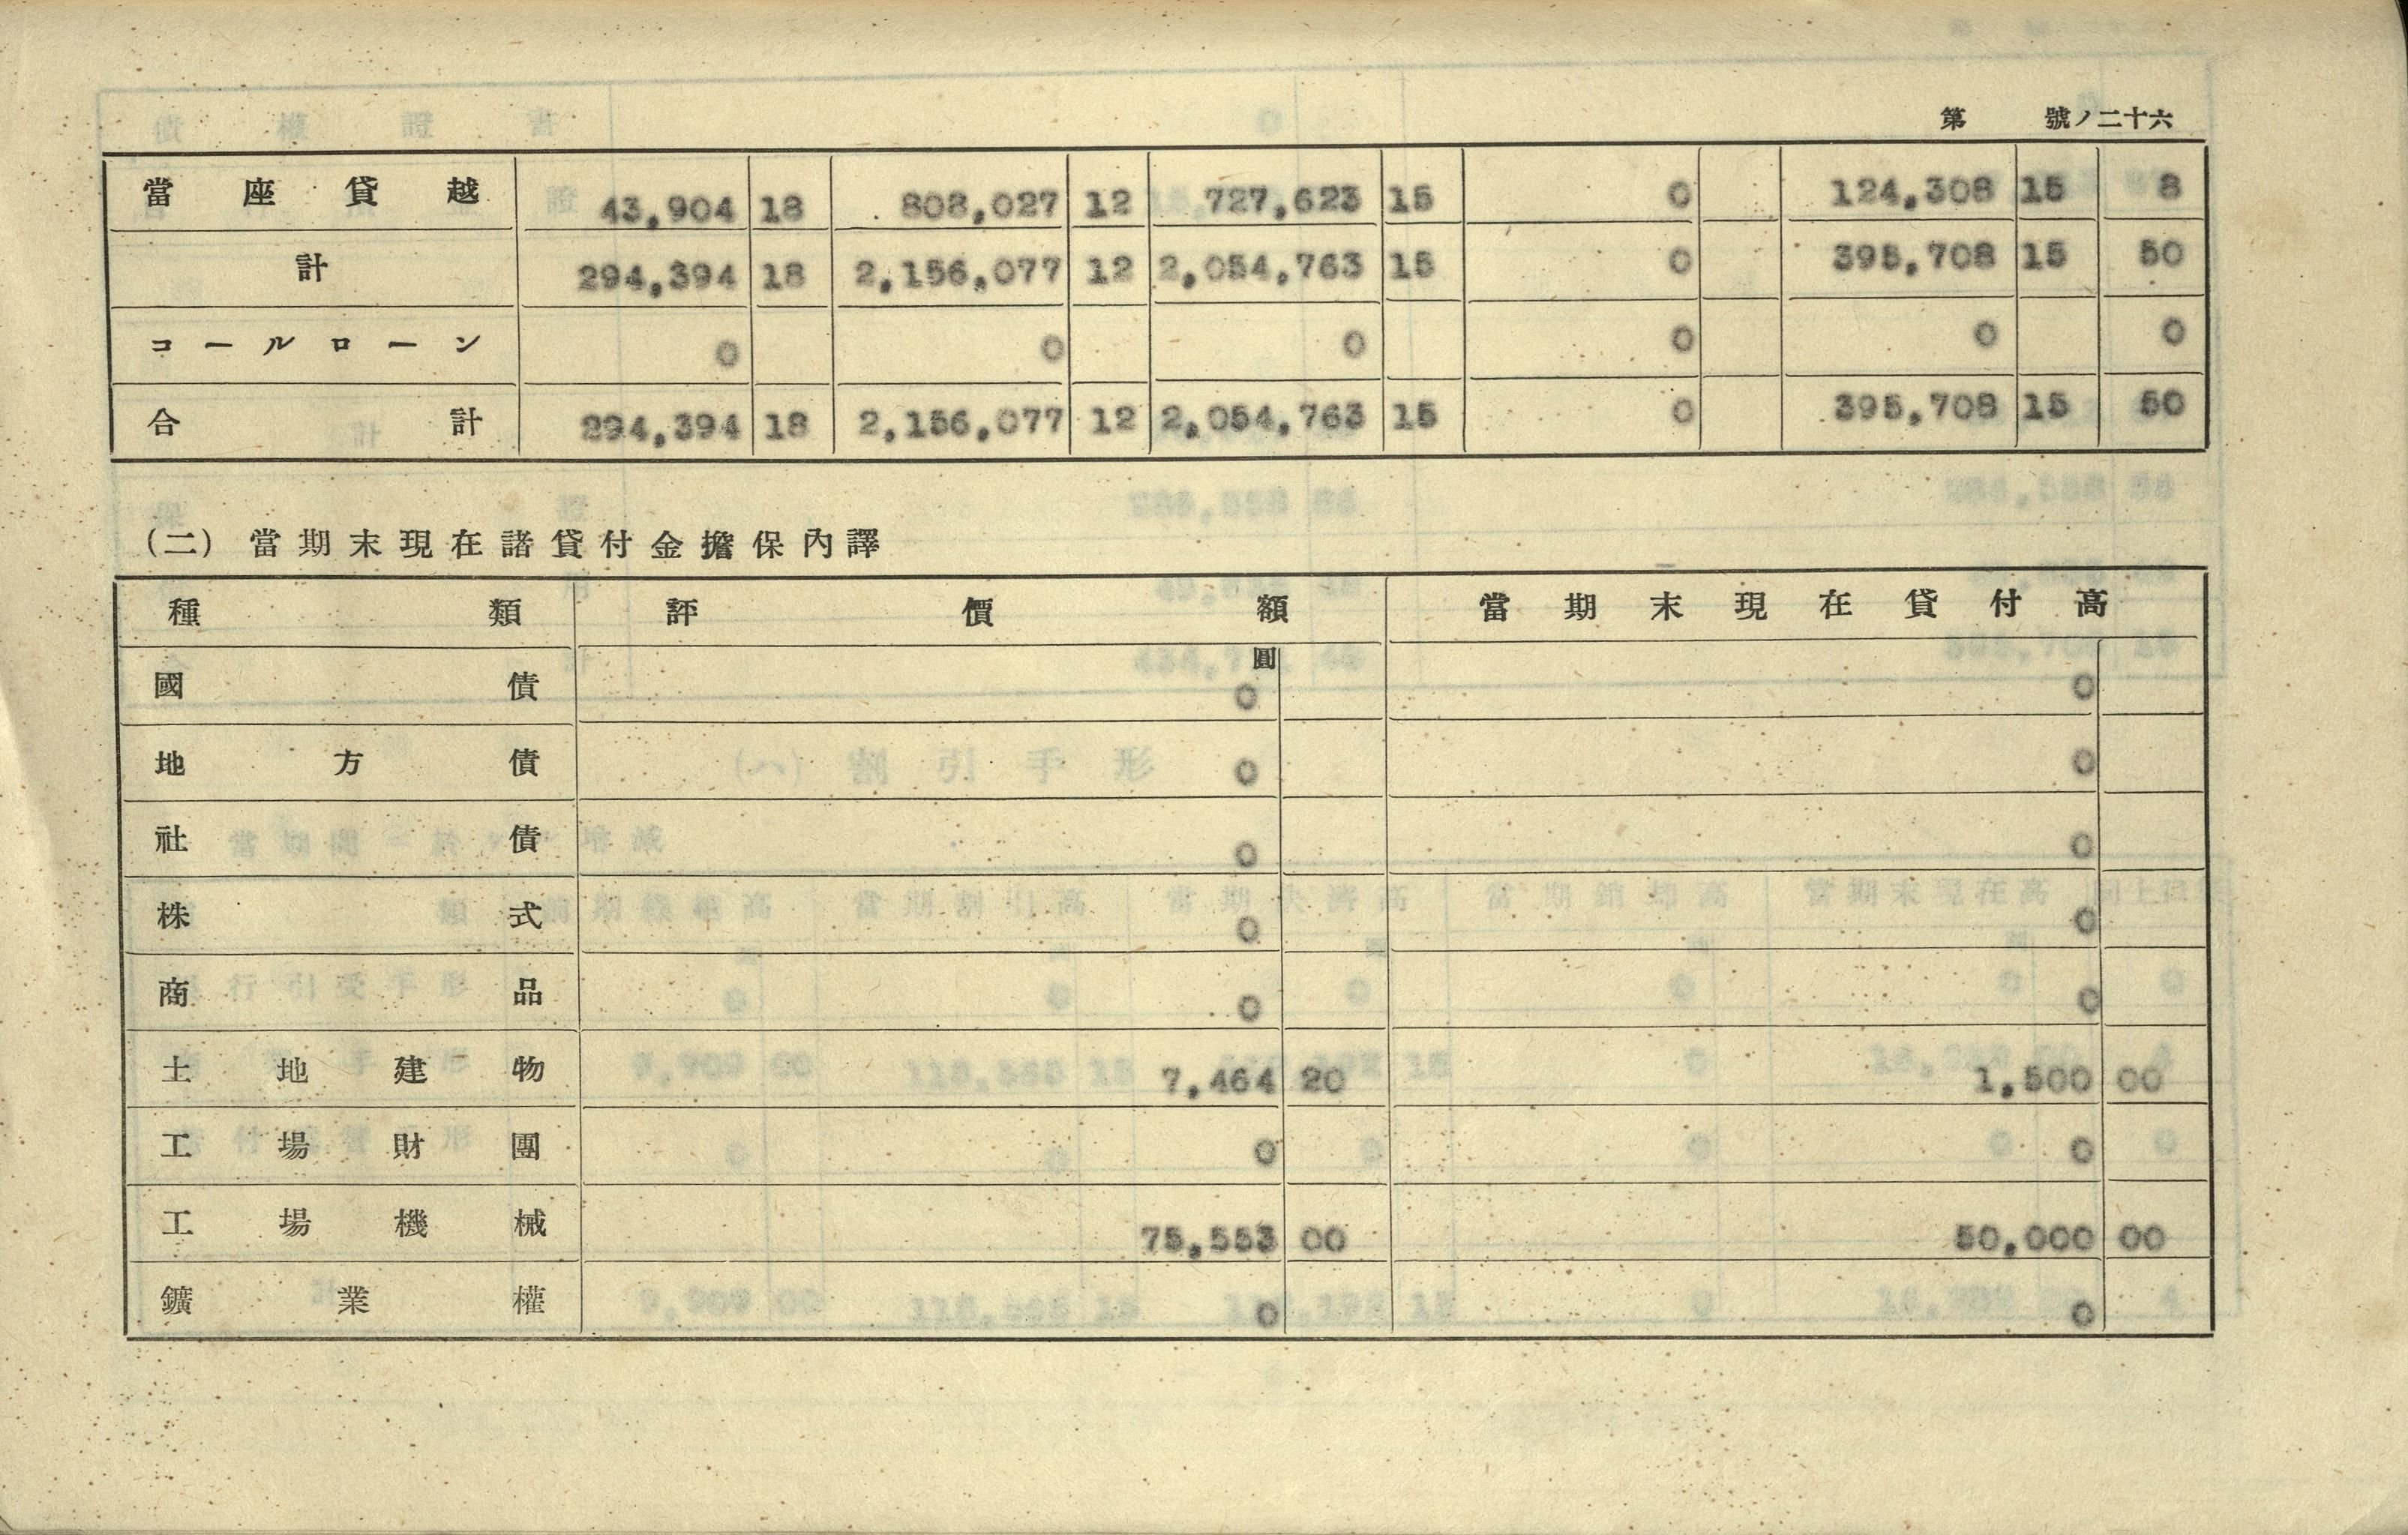 第 號ノ二十六
當座貸越 43,904 18 808,027 12 727,623 15 0 124,308 15 8
計 294,394 18 2,156,077 12 2,054,763 15 0 395,708 15 50
コールローン 0 0 0 0 0 0
合計 294,394 18 2,156,077 12 2,054,763 15 0 395,708 15 50
(二) 當期末現在諸貸付金擔保內譯
種類 評價額 當期末現在貸付高
圓
國債 0 0
地方債 0 0
社債 0 0
株式 0 0
商品 0 0
土地建物 7,464 20 1,500 00
工場財團 0 0
工場機械 75,553 00 50,000 00
鑛業權 0 0